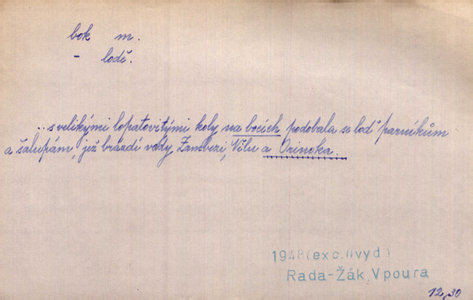 bok m.
- lodi.
...s velikými lopatovitými koly na bocích podobala se loď parníkům
a šalupám, jež brázdí vody Zambezi, Nilu a Orinoka.
1948(exc.IIvyd)
Rada-Žák Vpoura
12,30